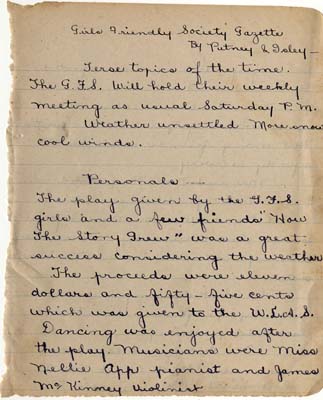 Girls Friendly Society Gazette
By Putney & Isley—
Terse topics of the time.
The G.F.S. Will hold their weekly
meeting as usual Saturday P.M.
Weather unsettled More snow
cool winds.
Personals
The play given by the G.F.S.
girls and a few friends "How
The Story Grew" was a great
success considering the weather
The proceeds were eleven
dollars and fifty-five cents
which was given to the W.L.A.S.
Dancing was enjoyed after
the play. Musicians were Miss
Nellie App pianist and James
McKinney violinist